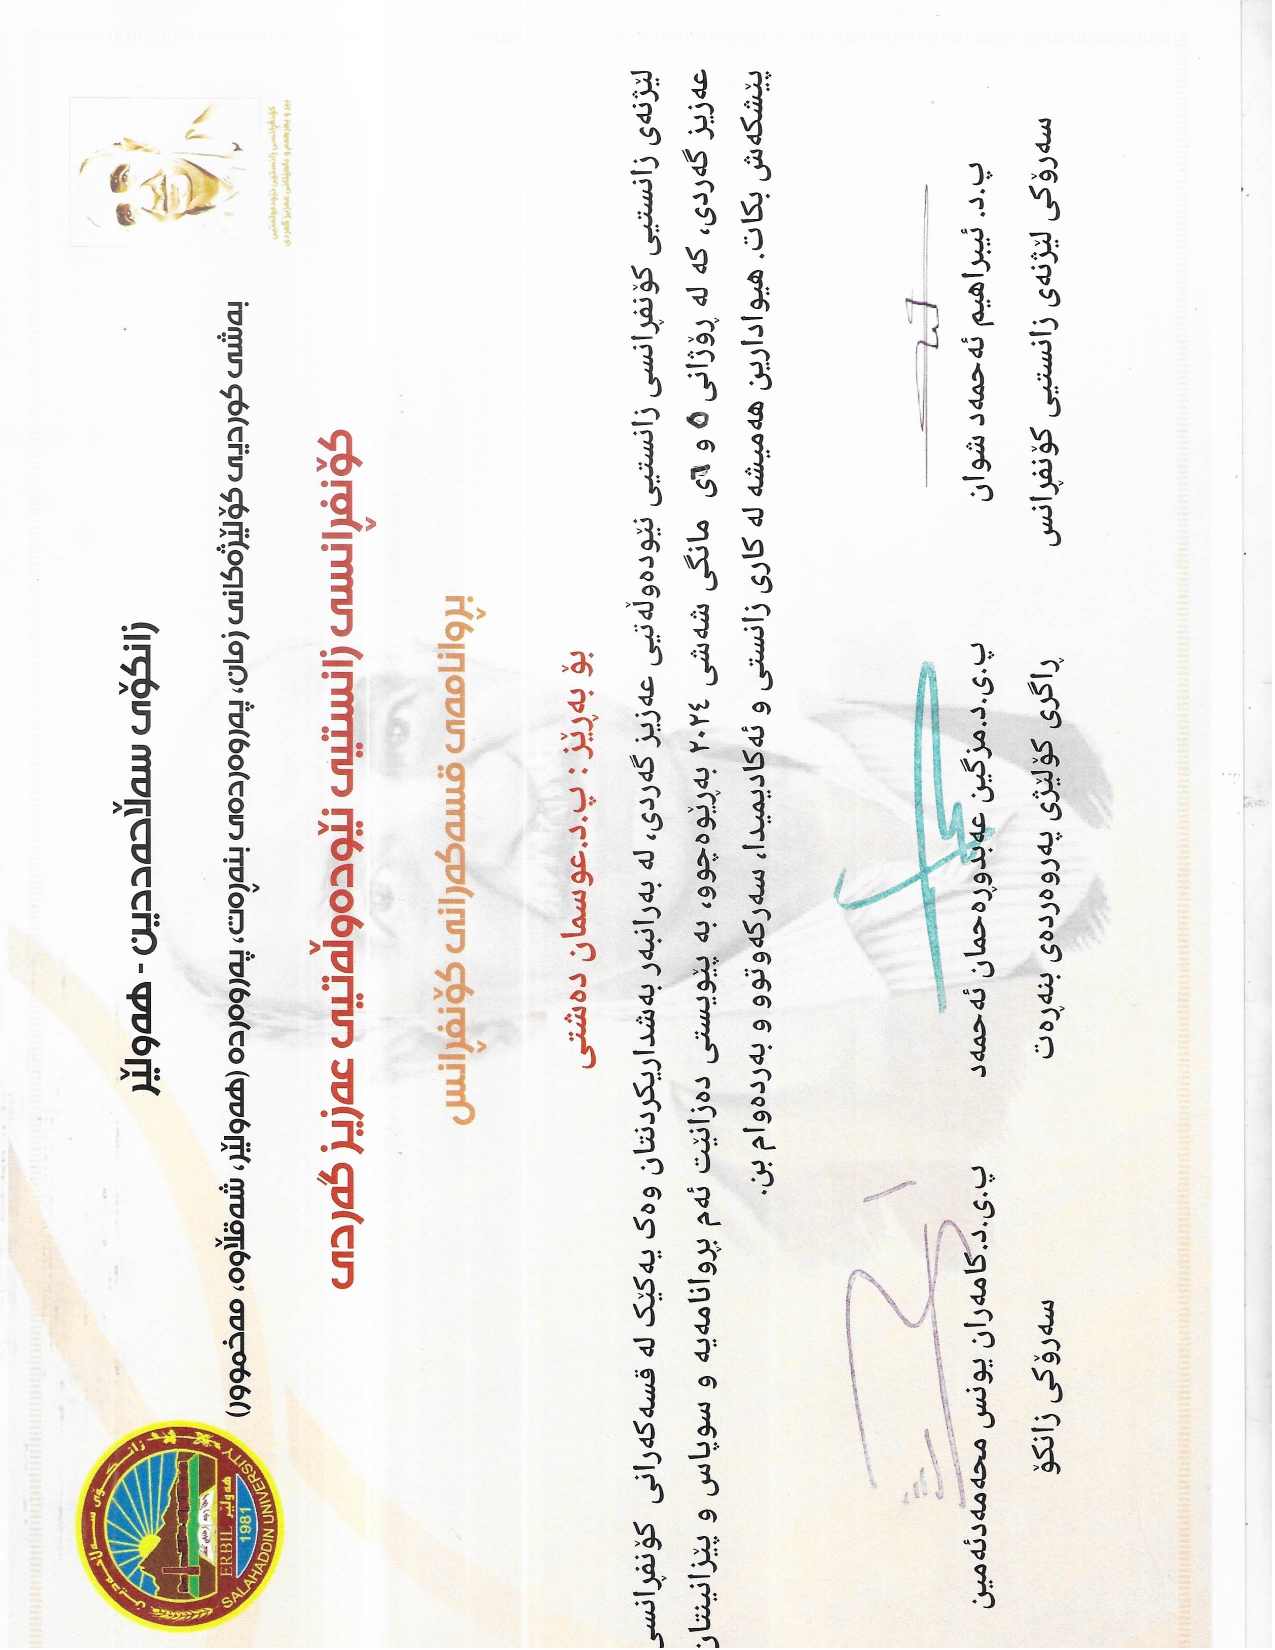 زانکۆی سەڵاحەددین - هەولێر
بەشی کوردیی کۆلێژەکانی (زمان، پەروەردەی بنەڕەت، پەروەردە (هەولێر، شەقڵاوە، مەخموور)
کۆنفڕانسی زانستیی نێودەوڵەتیی عەزیز گەردی
بڕوانامەی قسەکەرانی کۆنفڕانس
بۆ بەڕێز : پ.د.عوسمان دەشتی
لێژنەی زانستیی کۆنفڕانسی زانستیی نێودەوڵەتیی عەزیز گەردی، لە بەرانبەر بەشداریکردنتان وەک یەکێک لە قسەکەرانی کۆنفڕانسی
عەزیز گەردی، کە لە ڕۆژانی ٥ و ٦ی مانگی شەشی ٢٠٢٤ بەڕێوەچوو، بە پێویستی دەزانێت ئەم بڕوانامەیە و سوپاس و پێزانینتان
پێشکەش بکات. هیوادارین هەمیشە لە کاری زانستی و ئەکادیمیدا، سەرکەوتوو و بەردەوام بن.
پ.د. ئیبراهیم ئەحمەد شوان
سەرۆکی لێژنەی زانستیی کۆنفڕانس
پ.ی.د.مزگین عەبدوڕەحمان ئەحمەد
ڕاگری کۆلێژی پەروەردەی بنەڕەت
پ.ی.د.کامەران یونس محەمەدئەمین
سەرۆکی زانکۆ
کۆنفڕانسی زانستیی نێودەوڵەتیی
بیر و بەرهەم و داهێنانی عەزیز گەردی
زانکۆی سەلاحەددین
هەولێر
ERBIL
1981
SALAHADDIN UNIVERSITY